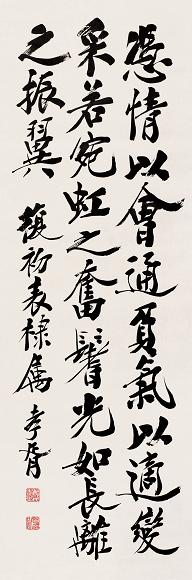 憑情以會通負氣以適變
采若宛虹之奮鬐光如長離
之振翼
馥初表棣屬 孝胥